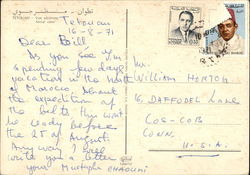 تطوان - منظر جوي
TETUAN
Tetouan
16-8-71
Dear Bill
As you see I'm
spending few days
vacation in the North
of Morocco. About
the expedition of
the belts this will
be ready before
the 25 of
August.
Any way I will
write you a letter
your Mustapha CHAOUNI
Mr.
William HERTOG
16, DAFFODEL LANE
COS-COB
CONN.
U.S.A.